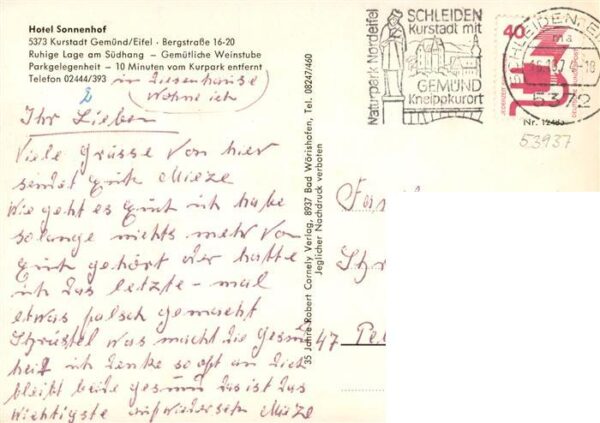 Hotel Sonnenhof
5373 Kurstadt Gemünd/Eifel · Bergstraße 16-20
Ruhige Lage am Südhang – Gemütliche Weinstube
Parkgelegenheit – 10 Minuten vom Kurpark entfernt
Telefon 02444/393
in diesem
wohne ich
Ihr Lieben
Viele Grüsse von hier
sendet Euch Mieze
Wie geht es Euch ich habe
solange nichts mehr von
Euch gehört oder hatte
ich das letzte - mal
etwas falsch gemacht
was macht die Gesund
heit ich denke so oft an Dich
bleibt beide gesund das ist das
Wichtigste aufwiedersehn Mieze
35 Jahre Robert Cornely Verlag, 8937 Bad Wörishofen, Tel. 08247/460
Jeglicher Nachdruck verboten
Naturpark Nordeifel
SCHLEIDEN
Kurstadt mit
GEMÜND
Kneippkurort
SCHLEIDEN, EIFEL
ma
5372
40
Nr. 12485
53937
Fa
47 Pe